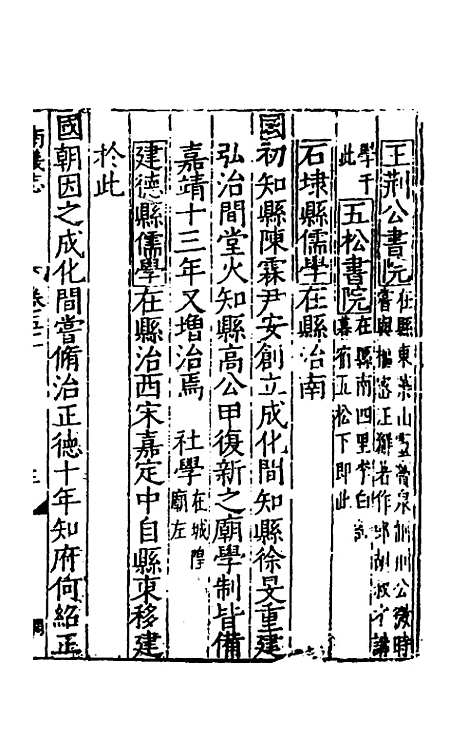 王荊公書院在縣東 山 泉 荊公微時
嘗與 正 著作郎胡 才講
學于此 五松書院在縣南四里李白
幕 五松下即此
石埭縣儒學在縣治南
國初知縣陳霖尹安創立成化間知縣徐旻重建
弘治間堂火知縣高公甲復新之廟學制皆備
嘉靖十三年又增治焉 社學在城隍廟左
建德縣儒學在縣治西宋嘉定中自縣東移建
於此
國朝因之成化間嘗脩治正德十年知府何紹正
志 卷 三